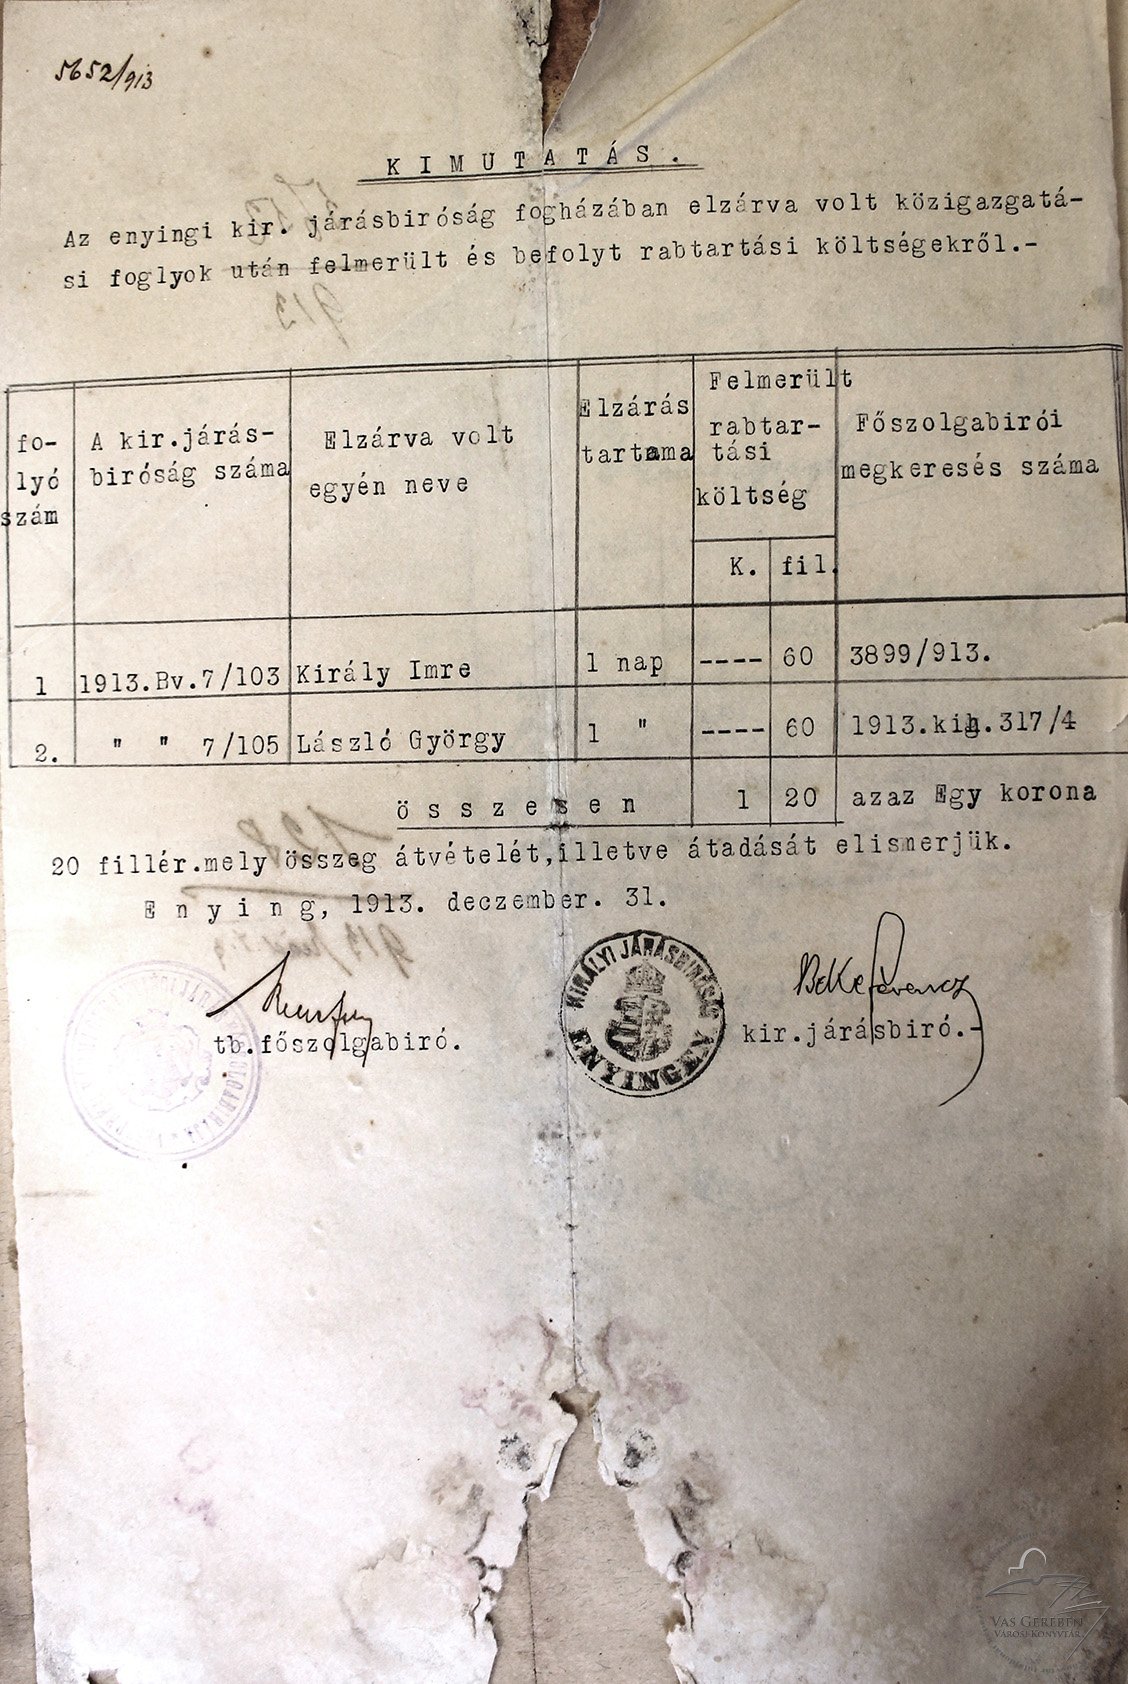 5652/913
KIMUTATÁS.
Az enyingi kir. járásbiróság fogházában elzárva volt közigazgatá-
si foglyok után felmerült és befolyt rabtartási költségekről.-
fo-
lyó
szám
A kir.járás-
biróság száma
Elzárva volt
egyén neve
Elzárás
tartama
Felmerült
rabtar-
tási
költség
K. fil.
Főszolgabirói
megkeresés száma
1 1913.Bv.7/103 Király Imre 1 nap ---- 60 3899/913.
2. " " 7/105 László György 1 " ---- 60 1913.kih.317/4
összesen 1 20 azaz Egy korona
20 fillér.mely összeg átvételét,illetve átadását elismerjük.
Enying, 1913. deczember. 31.
KIRÁLYI JÁRÁSBIRÓSÁG
ENYINGEN
Beke Ferencz
tb.főszolgabiró.
kir.járásbiró.-
VAS GEREBEN
VÁROSI KÖNYVTÁR